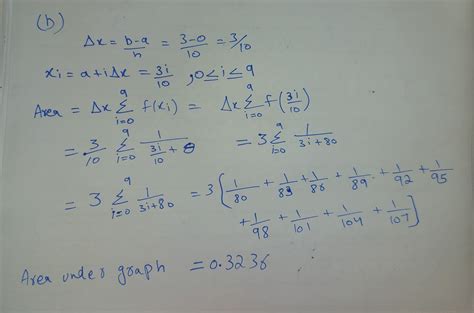 (b)
Δx = b-a/n = 3-0/10 = 3/10
xi = a+iΔx = 3i/10 , 0≤i≤9
Area = Δx 9Σi=0 f(xi) = Δx 9Σi=0 f(3i/10)
= 3/10 9Σi=0 1/(3i/10 + 8) = 3 9Σi=0 1/(3i+80)
= 3 9Σi=0 1/(3i+80) = 3[1/80 + 1/83 + 1/86 + 1/89 + 1/92 + 1/95
+ 1/98 + 1/101 + 1/104 + 1/107]
Area under graph = 0.3236